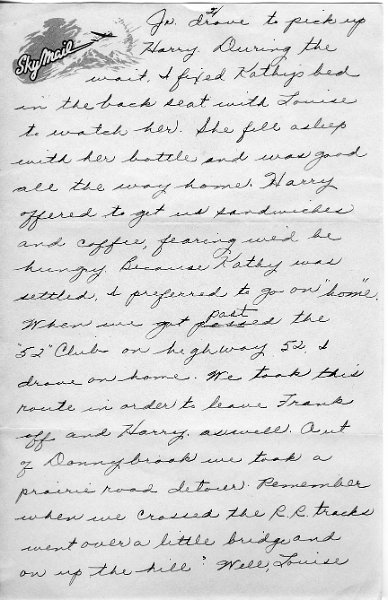 Sky Mail
Jr. drove to pick up
Harry. During the
wait, I fixed Kathy's bed
in the back seat with Louise
to watch her. She fell asleep
with her bottle and was good
all the way home. Harry
offered to get us sandwiches
and coffee, fearing we'd be
hungry. Because Kathy was
settled, I preferred to go on "home".
When we got past the
"52" Club on highway 52, I
drove on home. We took this
route in order to leave Frank
off and Harry, as well. Out
of Donnybrook we took a
prairie road detour. Remember
when we crossed the R.R. tracks
went over a little bridge and
on up the hill? Well, Louise